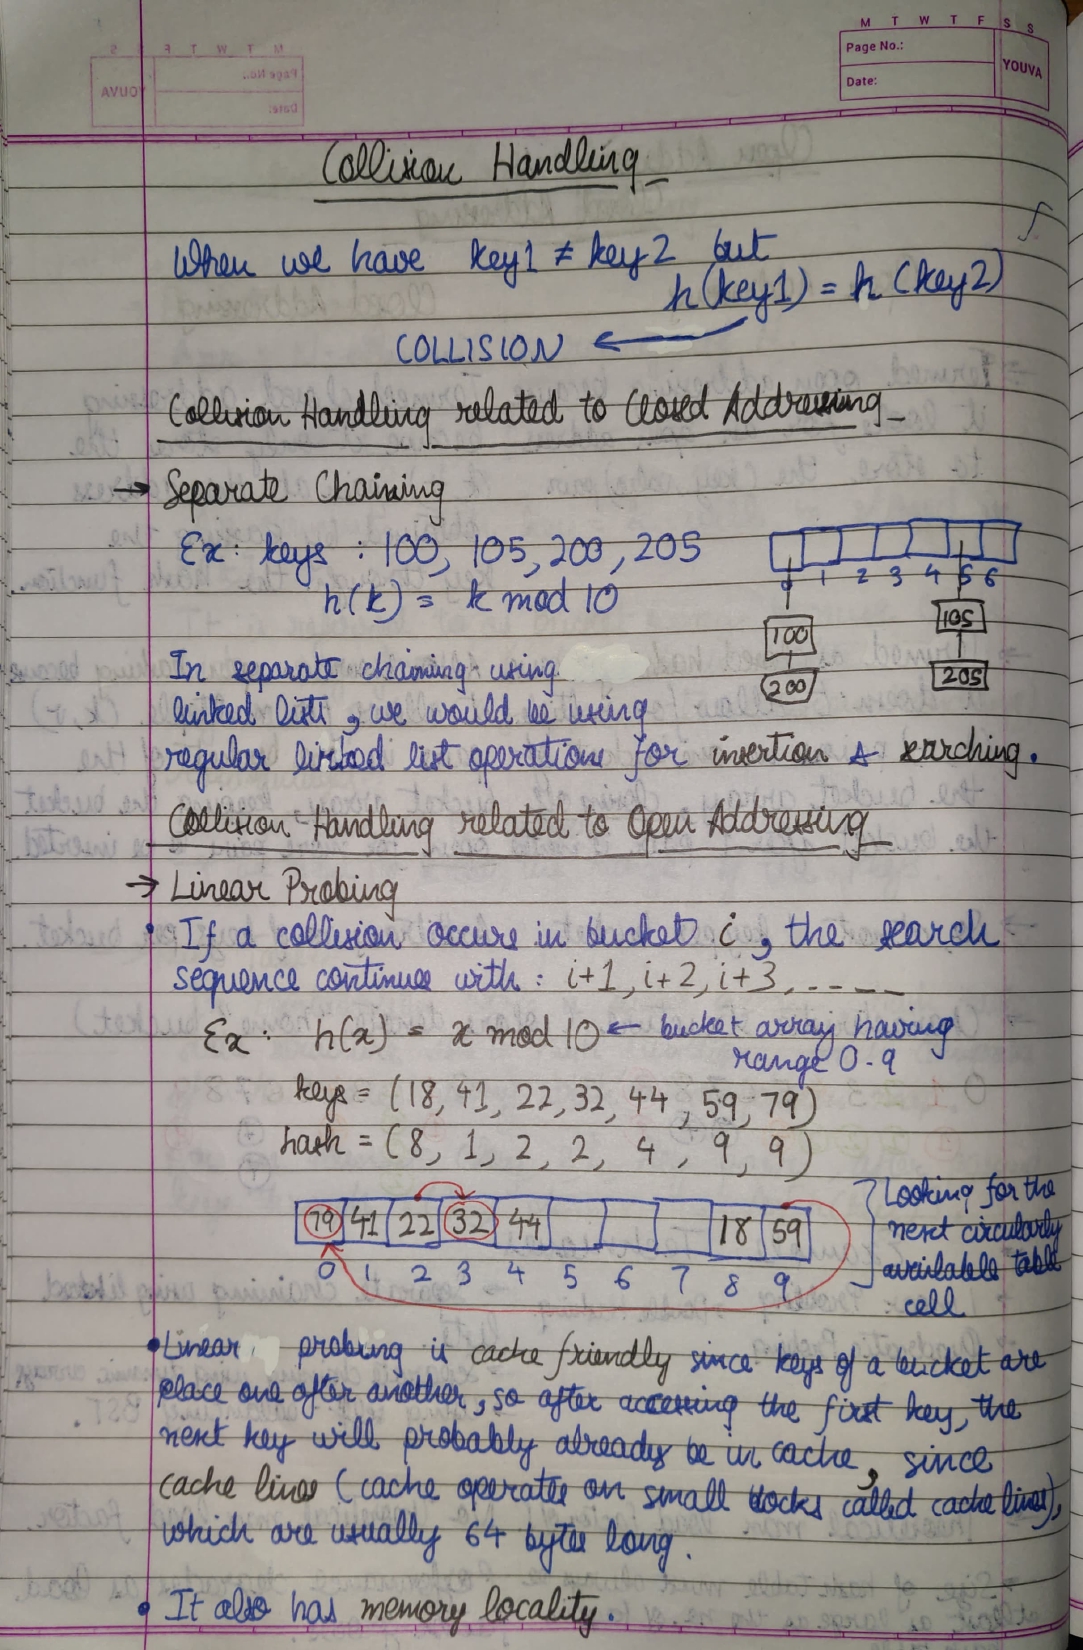 M T W T F S S
Page No.:
Date:
YOUVA
Collision Handling
When we have key1 ≠ key2 but
h(key1) = h(key2)
COLLISION ←
Collision Handling related to Closed Addressing
→ Separate Chaining
Ex: keys : 100, 105, 200, 205
h(k) = k mod 10
0 1 2 3 4 5 6
100 105
200 205
In separate chaining using
linked lists, we would be using
regular linked list operations for insertion & searching.
Collision Handling related to Open Addressing
→ Linear Probing
• If a collision occurs in bucket i, the search
sequence continues with : i+1, i+2, i+3, -----
Ex: h(x) = x mod 10 ← bucket array having
range 0-9
keys = (18, 41, 22, 32, 44, 59, 79)
hash = (8, 1, 2, 2, 4, 9, 9)
79 41 22 32 44 18 59
0 1 2 3 4 5 6 7 8 9
Looking for the
next circularly
available table
cell
• Linear probing is cache friendly since keys of a bucket are
place one after another, so after accessing the first key, the
next key will probably already be in cache, since
cache lines (cache operates on small blocks called cache lines),
which are usually 64 bytes long.
• It also has memory locality.